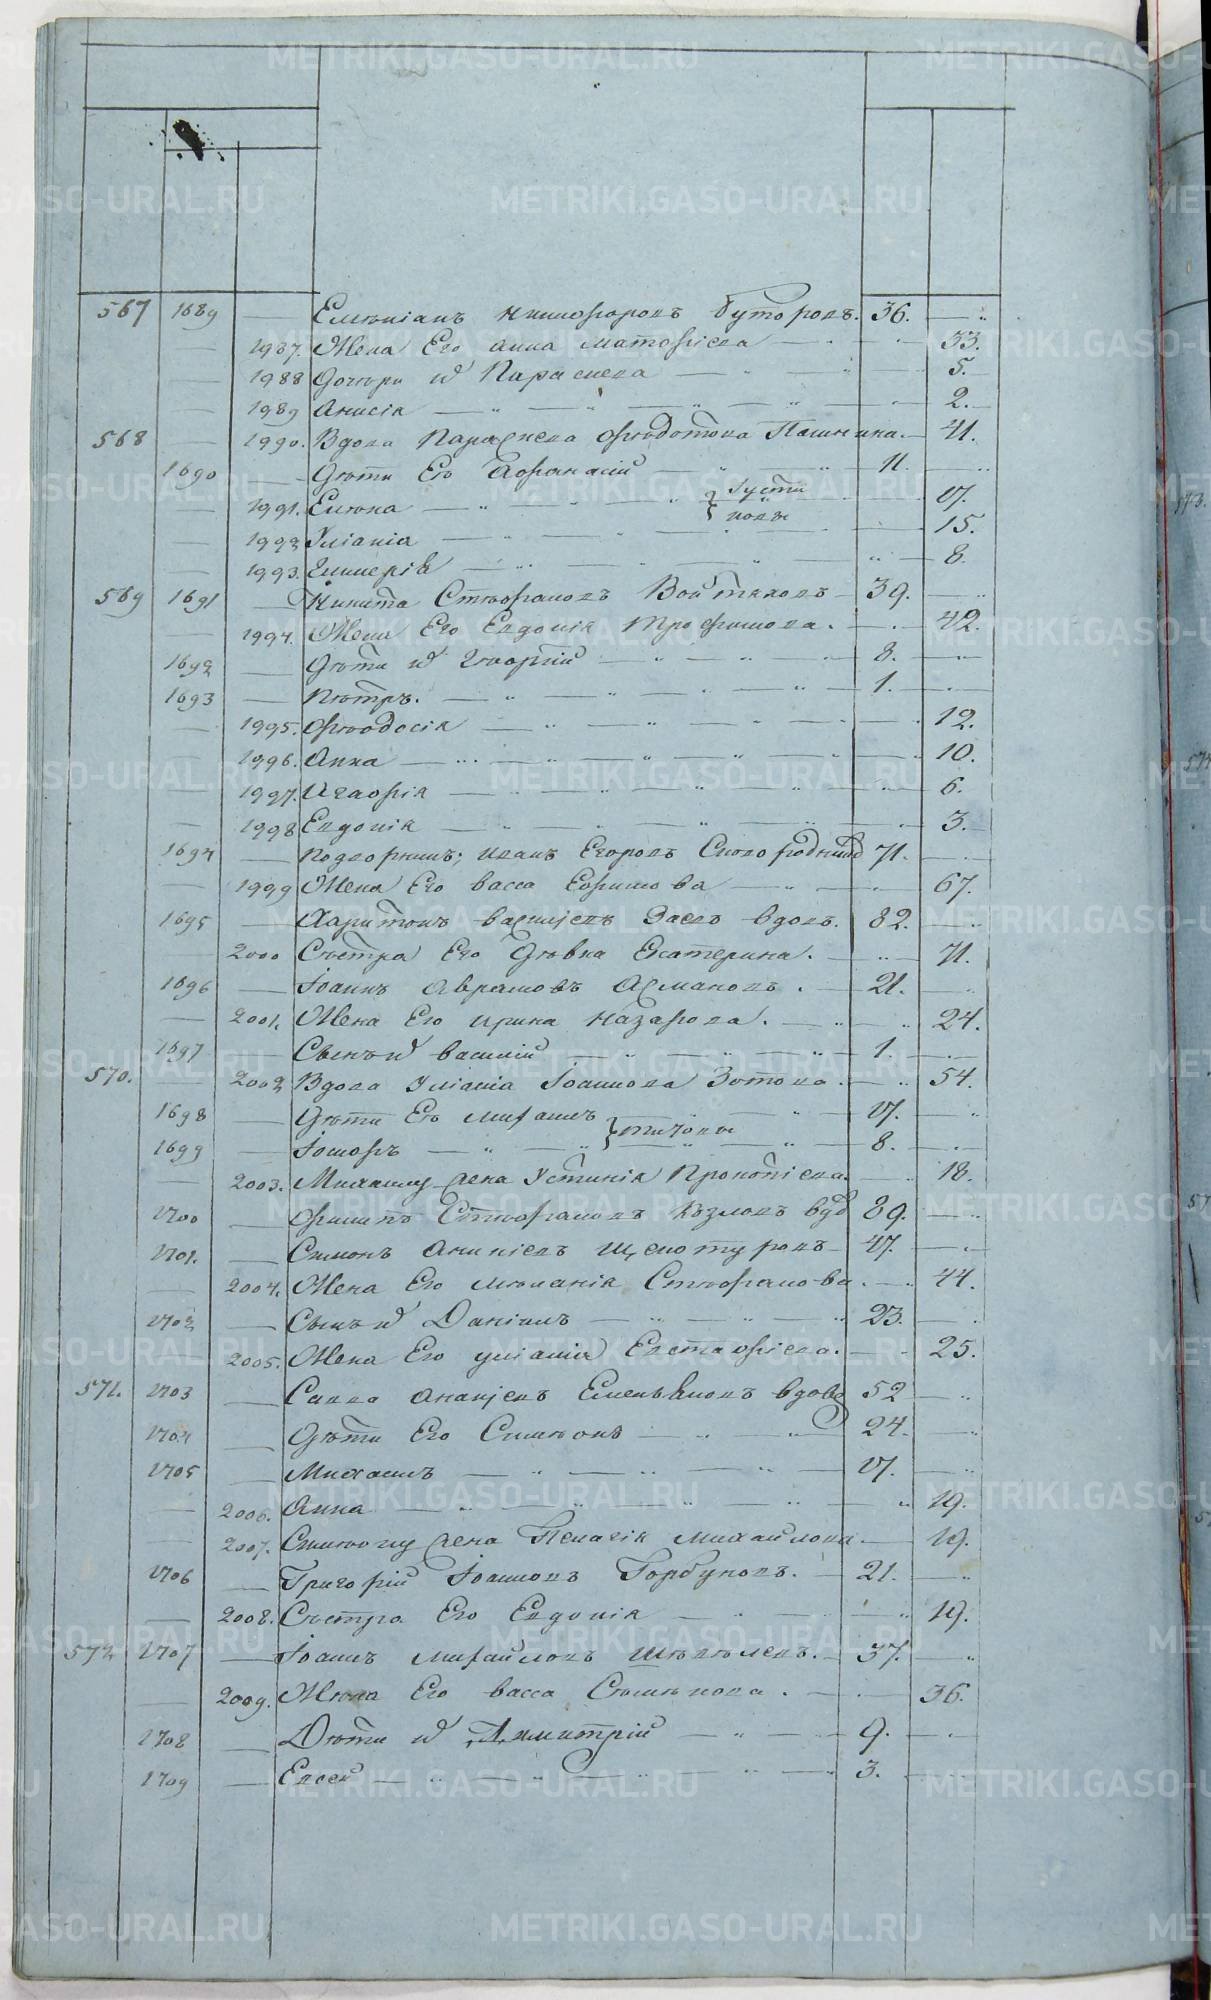 567 1689 — Емѣлiанъ Никифоровъ Буторовъ. 36.
1987. Жена Его Анна Матѳiева 33.
1988 Дочери ихъ Параскева 5.
1989 Анисiя 2.
568 1990. Вдова Параскева Ѳеодотова Пашнина. 41.
1690 Дѣти Её Аѳанасiй 11.
1991. Елена 17.
1992 Улiанiя 15.
1993. Гликерiя 8.
569 1691 Никита Стефановъ Войтяховъ 39.
1994. Жена Его Евдокiя Трофимова. 42.
1692 Дѣти ихъ Георгiй 8.
1693 Петръ. 1.
1995. Ѳеодосiя 12.
1996. Анна 10.
1997. Агафiя 6.
1998 Евдокiя 3.
1694 Подворникъ; Иванъ Егоровъ 71.
1999 Жена Его Васса Ефимова 67.
1695 Харитонъ Заевъ вдовъ. 82.
2000 Сестра Его Дѣвка Екатерина. 71.
1696 Iоаннъ Аврамовъ Асмановъ. 21.
2001. Жена Его Ирина Назарова. 24.
1697 Сынъ ихъ Василiй 1.
570. 2002 Вдова Улiанiя Iоаннова Зотова. 54.
1698 Дѣти Её Михаилъ 17.
1699 8.
2003. Михаилу жена Устинiя Прокопiева. 18.
1700 Филипъ Стефановъ Козловъ вдов 89.
1701. Симонъ Ананiевъ Щекотуровъ 47.
2004. Жена Его Меланiя Стефанова. 44.
1702 Сынъ ихъ Данiилъ 23.
2005. Жена Его Улiанiя Евстафiева. 25.
571. 1703 Савва Ананьевъ Емельяновъ вдовъ 52
1704 Дѣти Его Симеонъ 24.
1705 Михаилъ 17.
2006. Анна 19.
2007. Симеону жена Пелагiя Михайлова 19.
1706 Григорiй Iоанновъ Горбуновъ. 21.
2008. Сестра Его Евдокiя 19.
572 1707 Iоаннъ Михайловъ Шевелевъ. 37.
2009. Жена Его Васса Семенова. 36.
1708 Дѣти ихъ Димитрiй 9.
1709 Евсей 3.